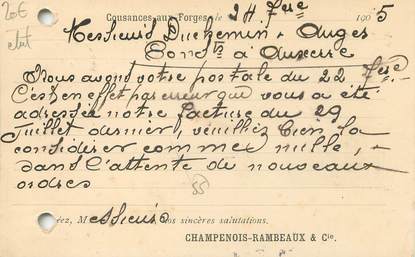 20€
Cousances-aux-Forges, le 24 7bre 1905
Messieurs Duchemin & Auges
à Auxerre
Nous avons votre postale du 22
C'est en effet par erreur que vous a été
adressée notre facture du 29
Juillet dernier, veuillez bien la
considérer comme nulle, -
dans l'attente de nouveaux
ordres
55
Messieurs nos sincères salutations.
CHAMPENOIS-RAMBEAUX & Cie.